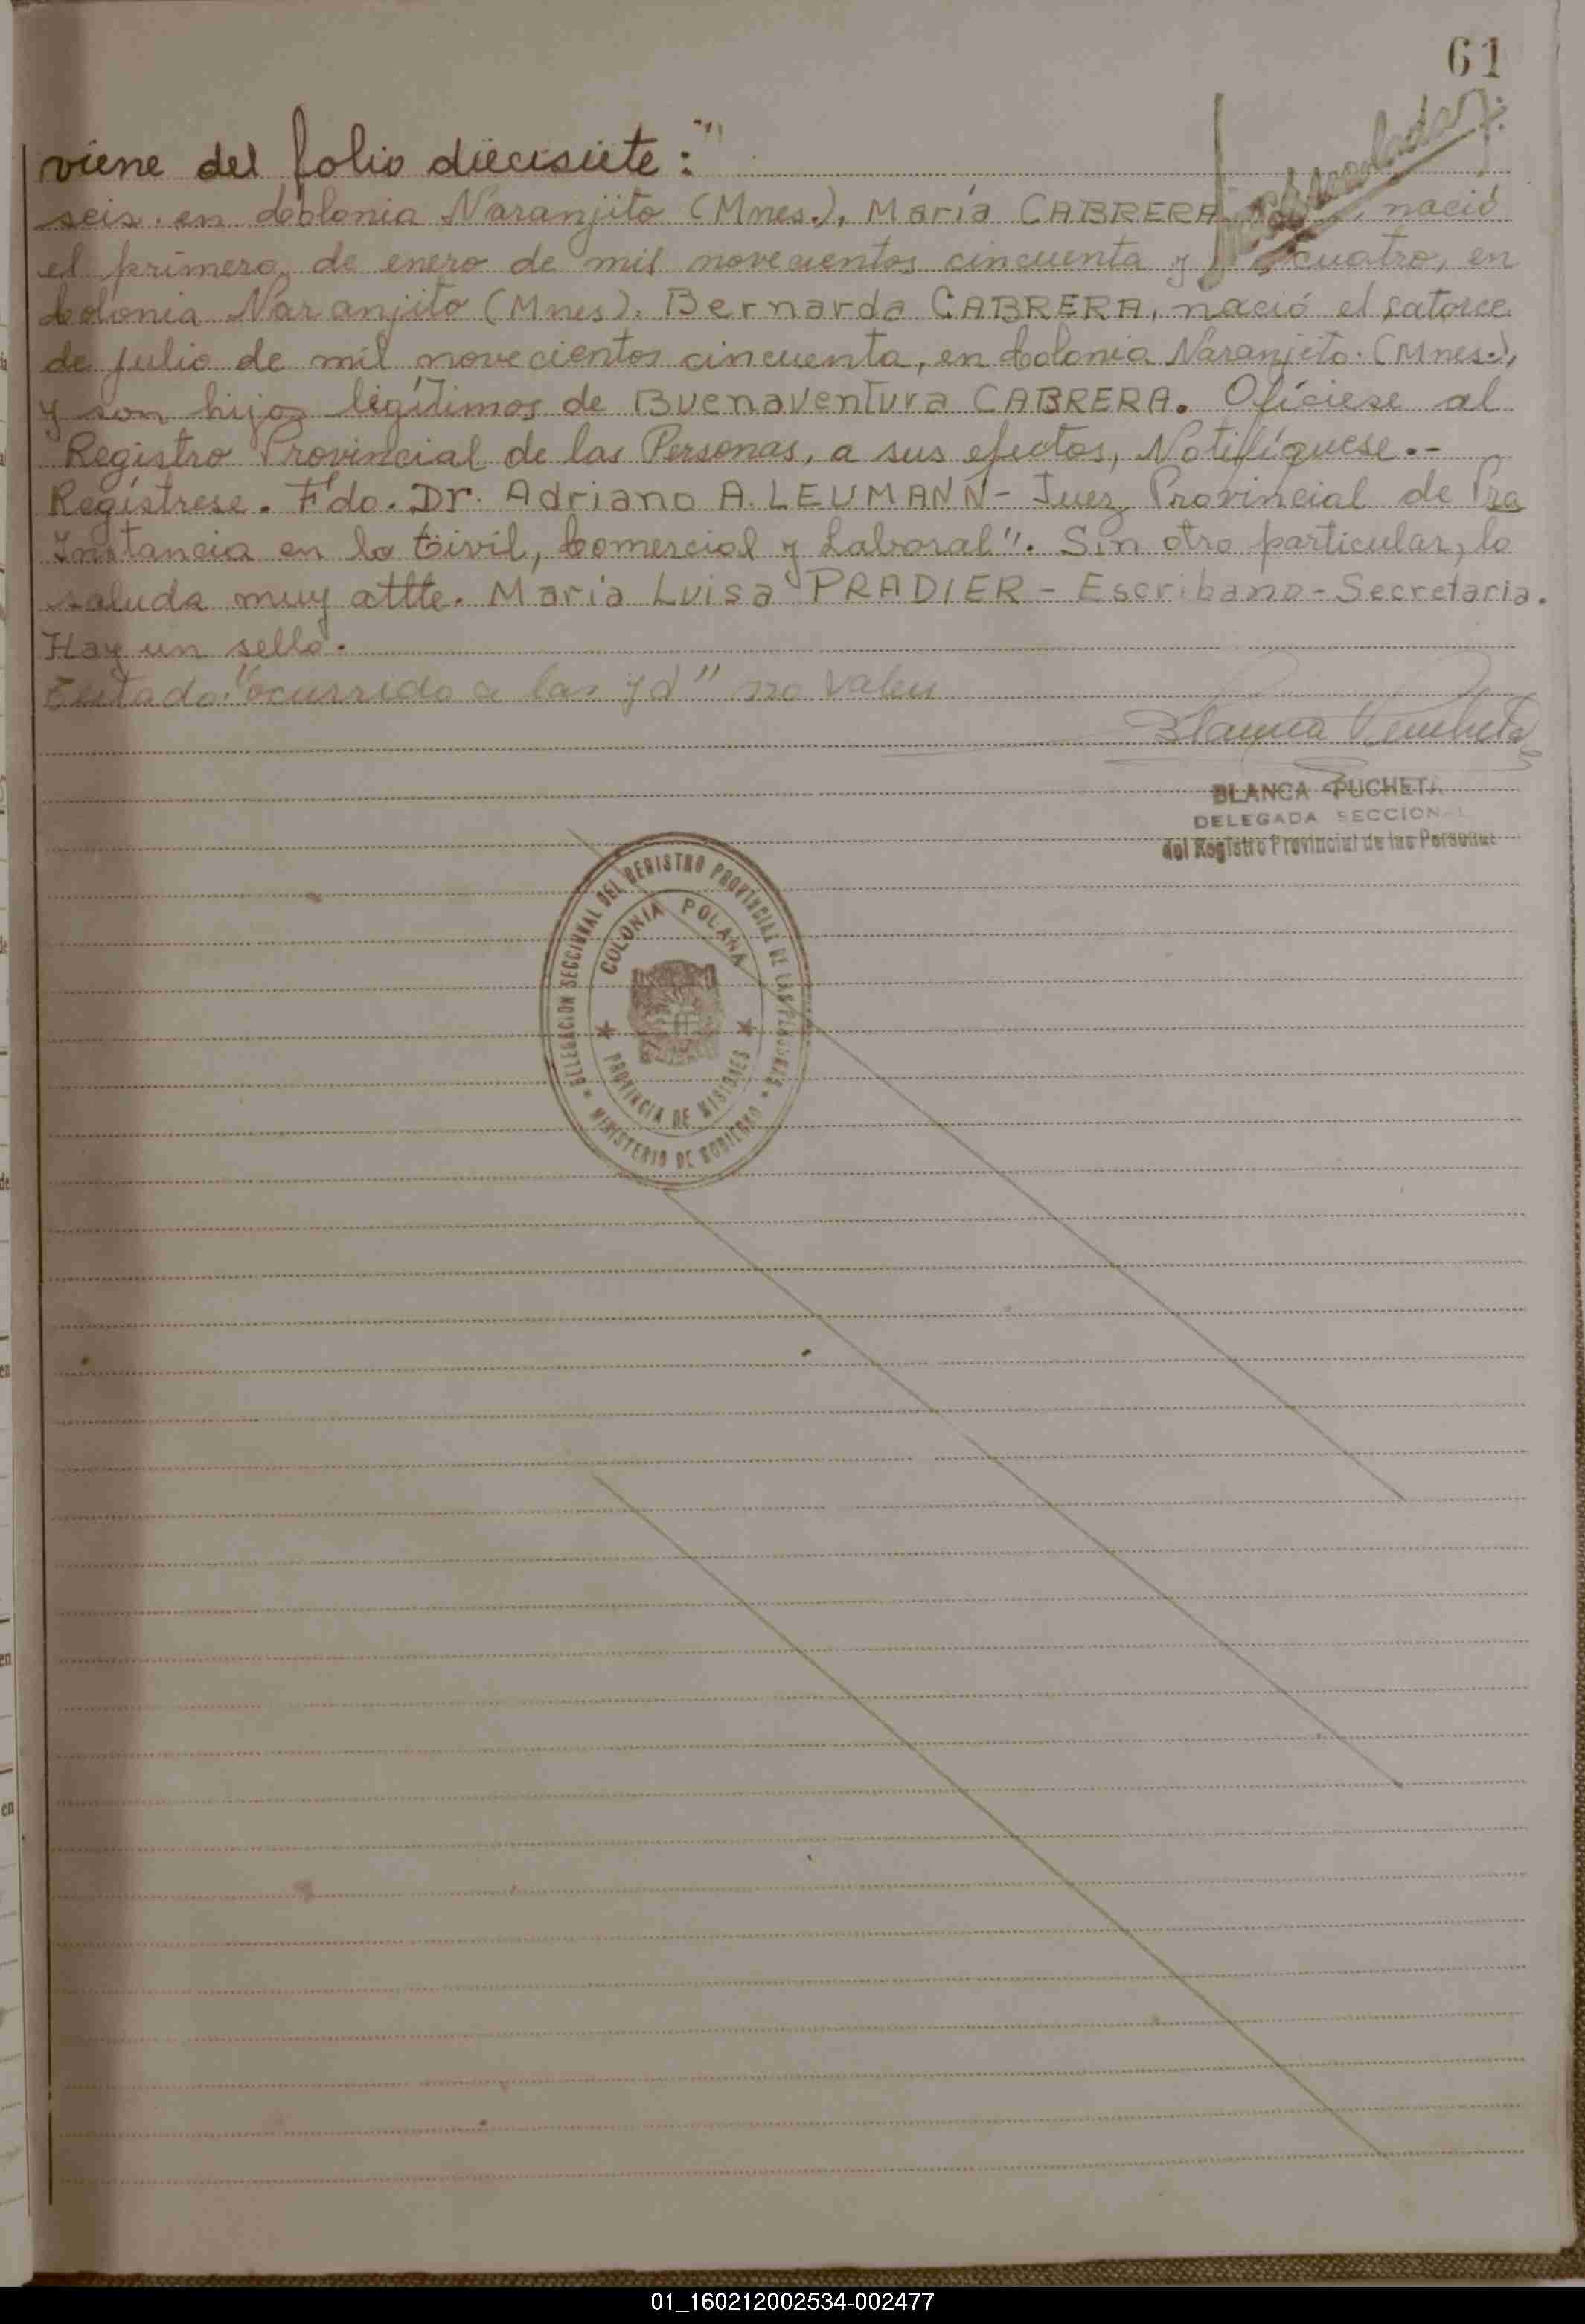 61
viene del folio diecisiete:"
seis. en Colonia Naranjito (Mnes.), María CABRERA, nació
el primero de enero de mil novecientos cincuenta y cuatro, en
Colonia Naranjito (Mnes). Bernarda CABRERA, nació el catorce
de julio de mil novecientos cincuenta, en Colonia Naranjito. (Mnes.),
y son hijos legítimos de Buenaventura CABRERA. Ofíciese al
Registro Provincial de las Personas, a sus efectos, Notifíquese.-
Regístrese. Fdo. Dr. Adriano A. LEUMANN - Juez Provincial de Pra
Instancia en lo Civil, Comercial y Laboral". Sin otro particular, lo
saluda muy attte. María Luisa PRADIER - Escribano - Secretaria.
Hay un sello.
Testado: "ocurrido a las y d" no valen
Blanca Pucheta
BLANCA PUCHETA
DELEGADA SECCIONAL
del Registro Provincial de las Personas
DELEGACION SECCIONAL DEL REGISTRO PROVINCIAL DE LAS PERSONAS
COLONIA POLANA
PROVINCIA DE MISIONES
MINISTERIO DE GOBIERNO
01_160212002534-002477